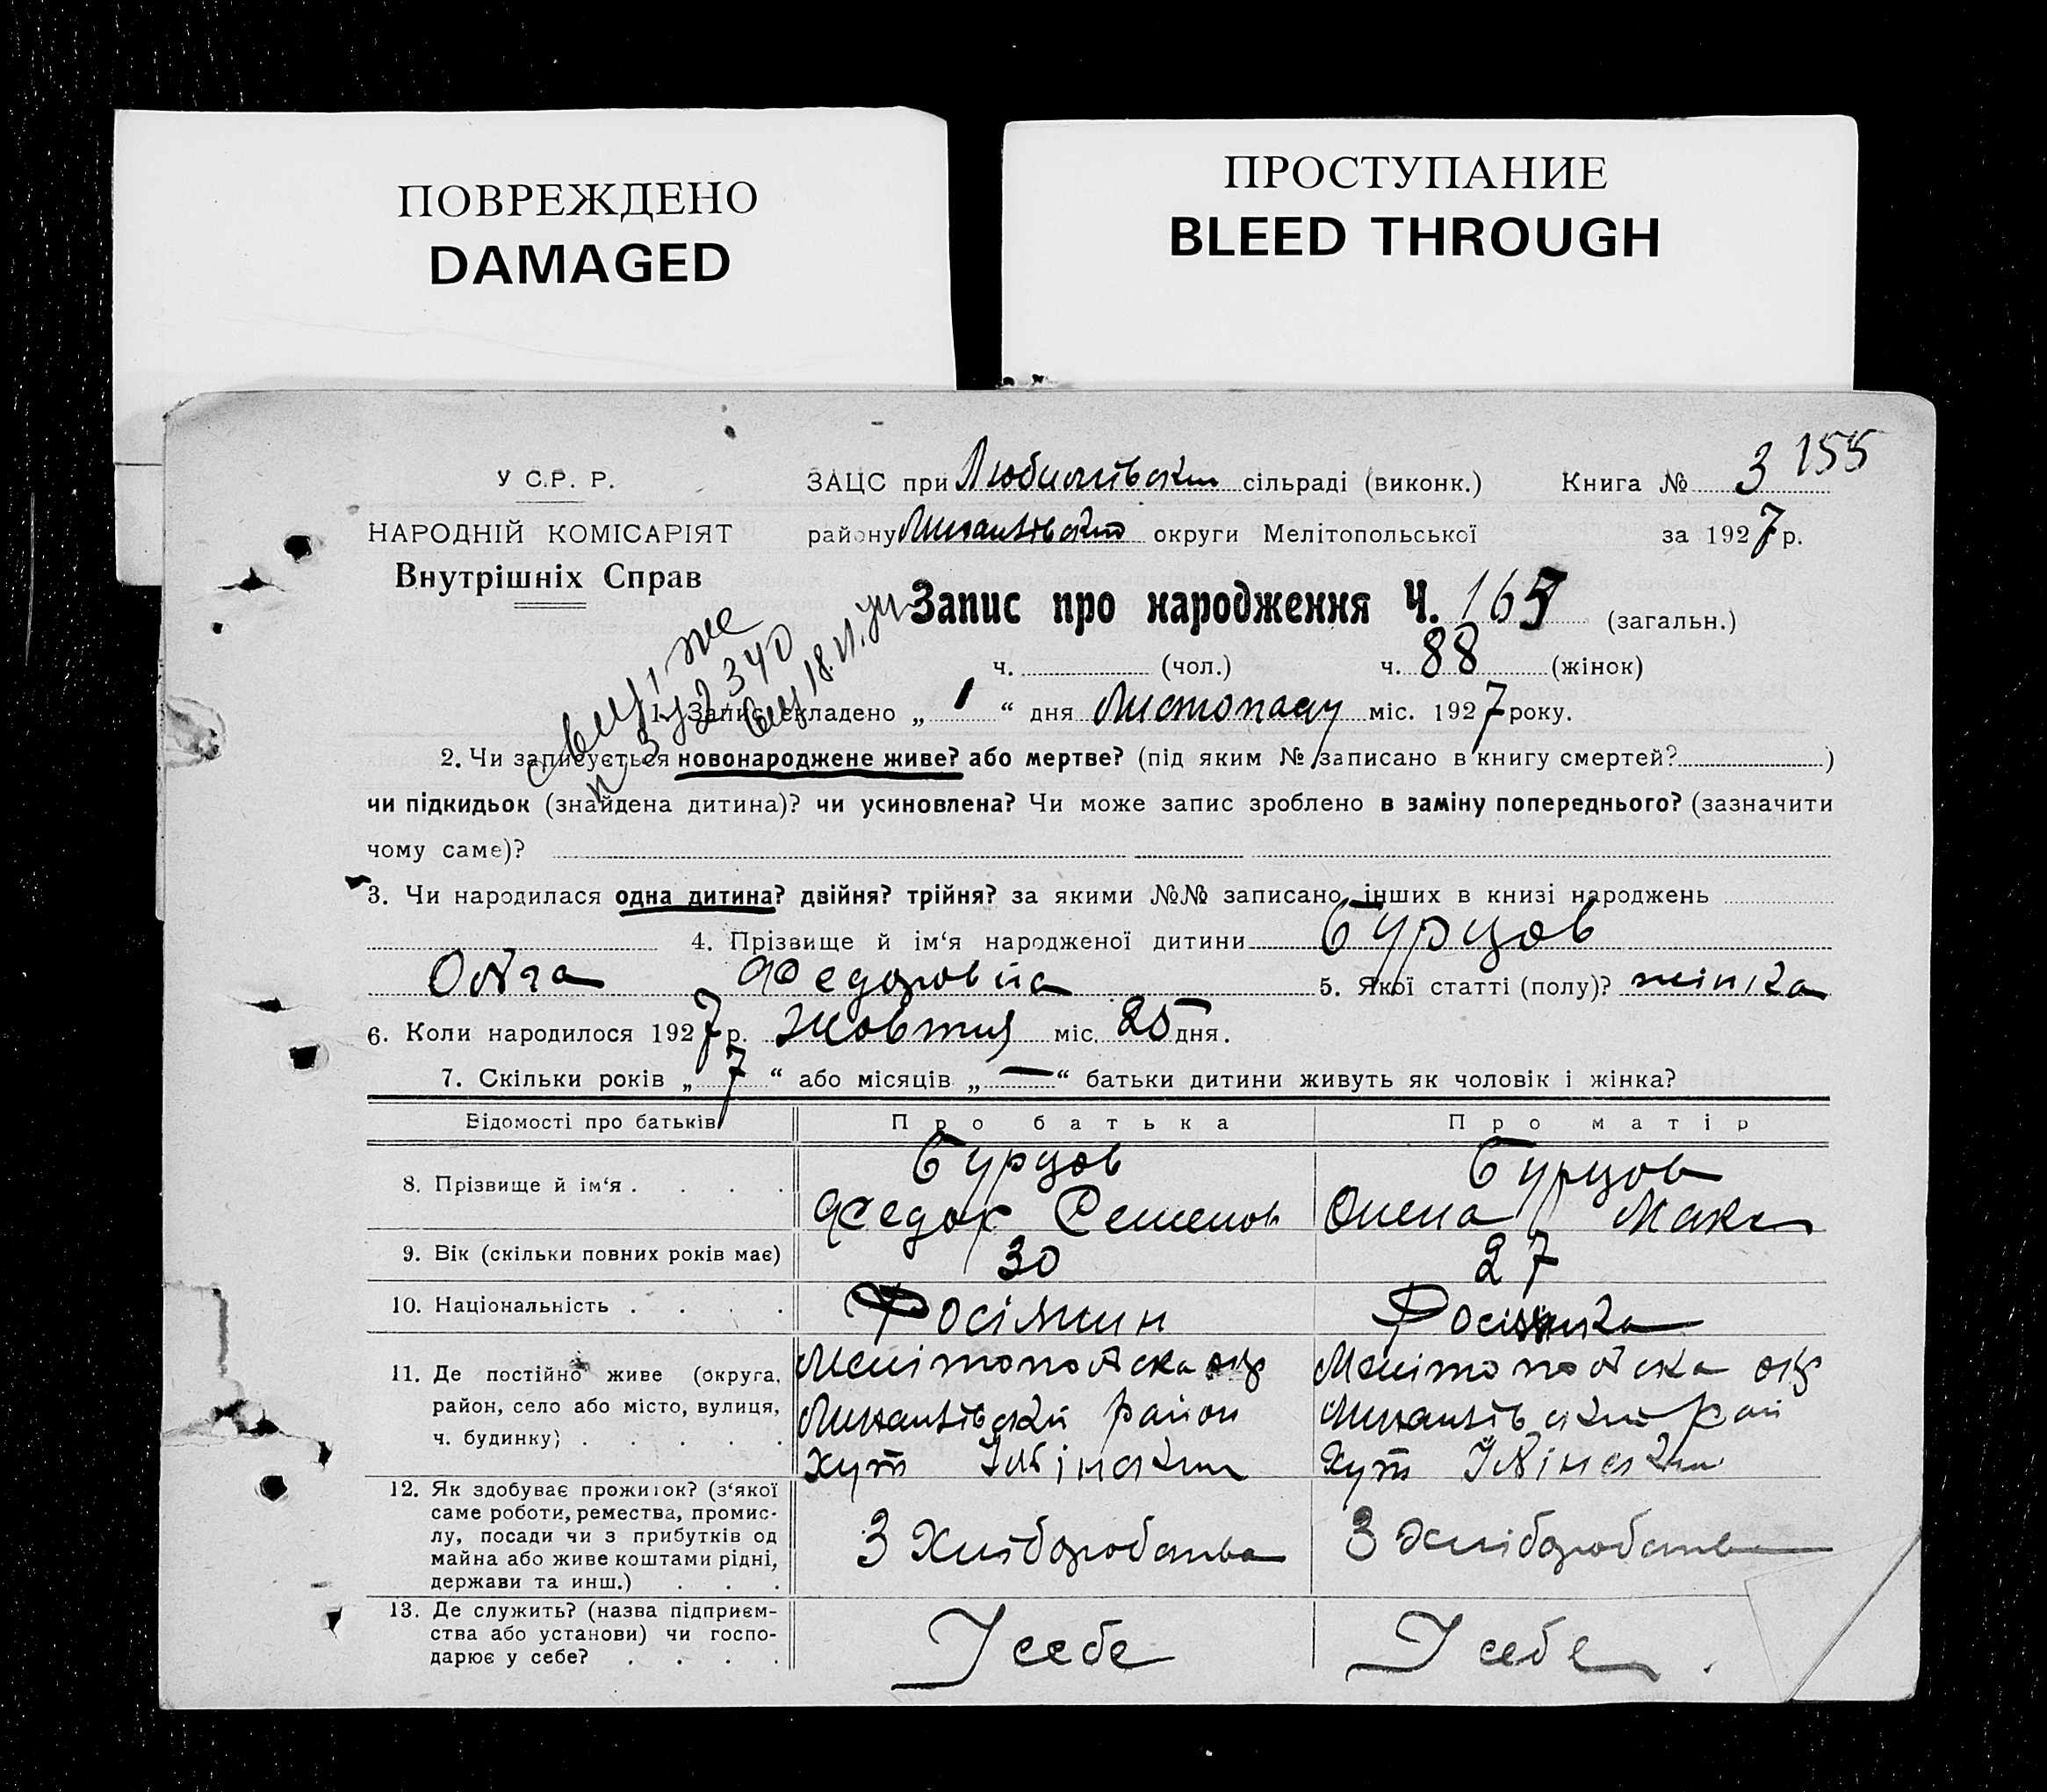 ПОВРЕЖДЕНО
DAMAGED
ПРОСТУПАНИЕ
BLEED THROUGH
155
У С.Р. Р.
НАРОДНІЙ КОМІСАРІЯТ
Внутрішніх Справ
ЗАЦС при Любимівскім сільраді (виконк.) Книга № 3
району округи Мелітопольської за 1927 р.
Запис про народження Ч. 165 (загальн.)
ч. (чол.) ч. 88 (жінок)
1. Запис складено „ 1 “ дня Листопаду міс. 1927 року.
2. Чи записується новонароджене живе? або мертве? (під яким № записано в книгу смертей? )
чи підкидьок (знайдена дитина)? чи усиновлена? Чи може запис зроблено в заміну попереднього? (зазначити
чому саме)?
3. Чи народилася одна дитина? двійня? трійня? за якими №№ записано інших в книзі народжень
4. Прізвище й ім‘я народженої дитини Бурцов
Ольга Федоровна 5. Якої статті (полу)? жінка
6. Коли народилося 1927 р. Жовтня міс. 25 дня.
7. Скільки років „ 7 “ або місяців „ — “ батьки дитини живуть як чоловік і жінка?
Відомості про батьків Про батька Про матір
8. Прізвище й ім‘я . . . . Бурцов Бурцов
Федор Семенов Олена Макс
9. Вік (скільки повних років має) 30 27
10. Національність . . . . Росіянин Росіянка
11. Де постійно живе (округа, Мелітопольска окр Мелітопольска окр
район, село або місто, вулиця, район рай
ч. будинку) . . . . . хут хут
12. Як здобуває прожиток? (з‘якої
саме роботи, ремества, промис-
лу, посади чи з прибутків од З Хліборобства З Хліборобства
майна або живе коштами рідні,
держави та инш.) . . .
13. Де служить? (назва підприєм-
ства або установи) чи госпо- У себе У себе
дарює у себе? . . . .